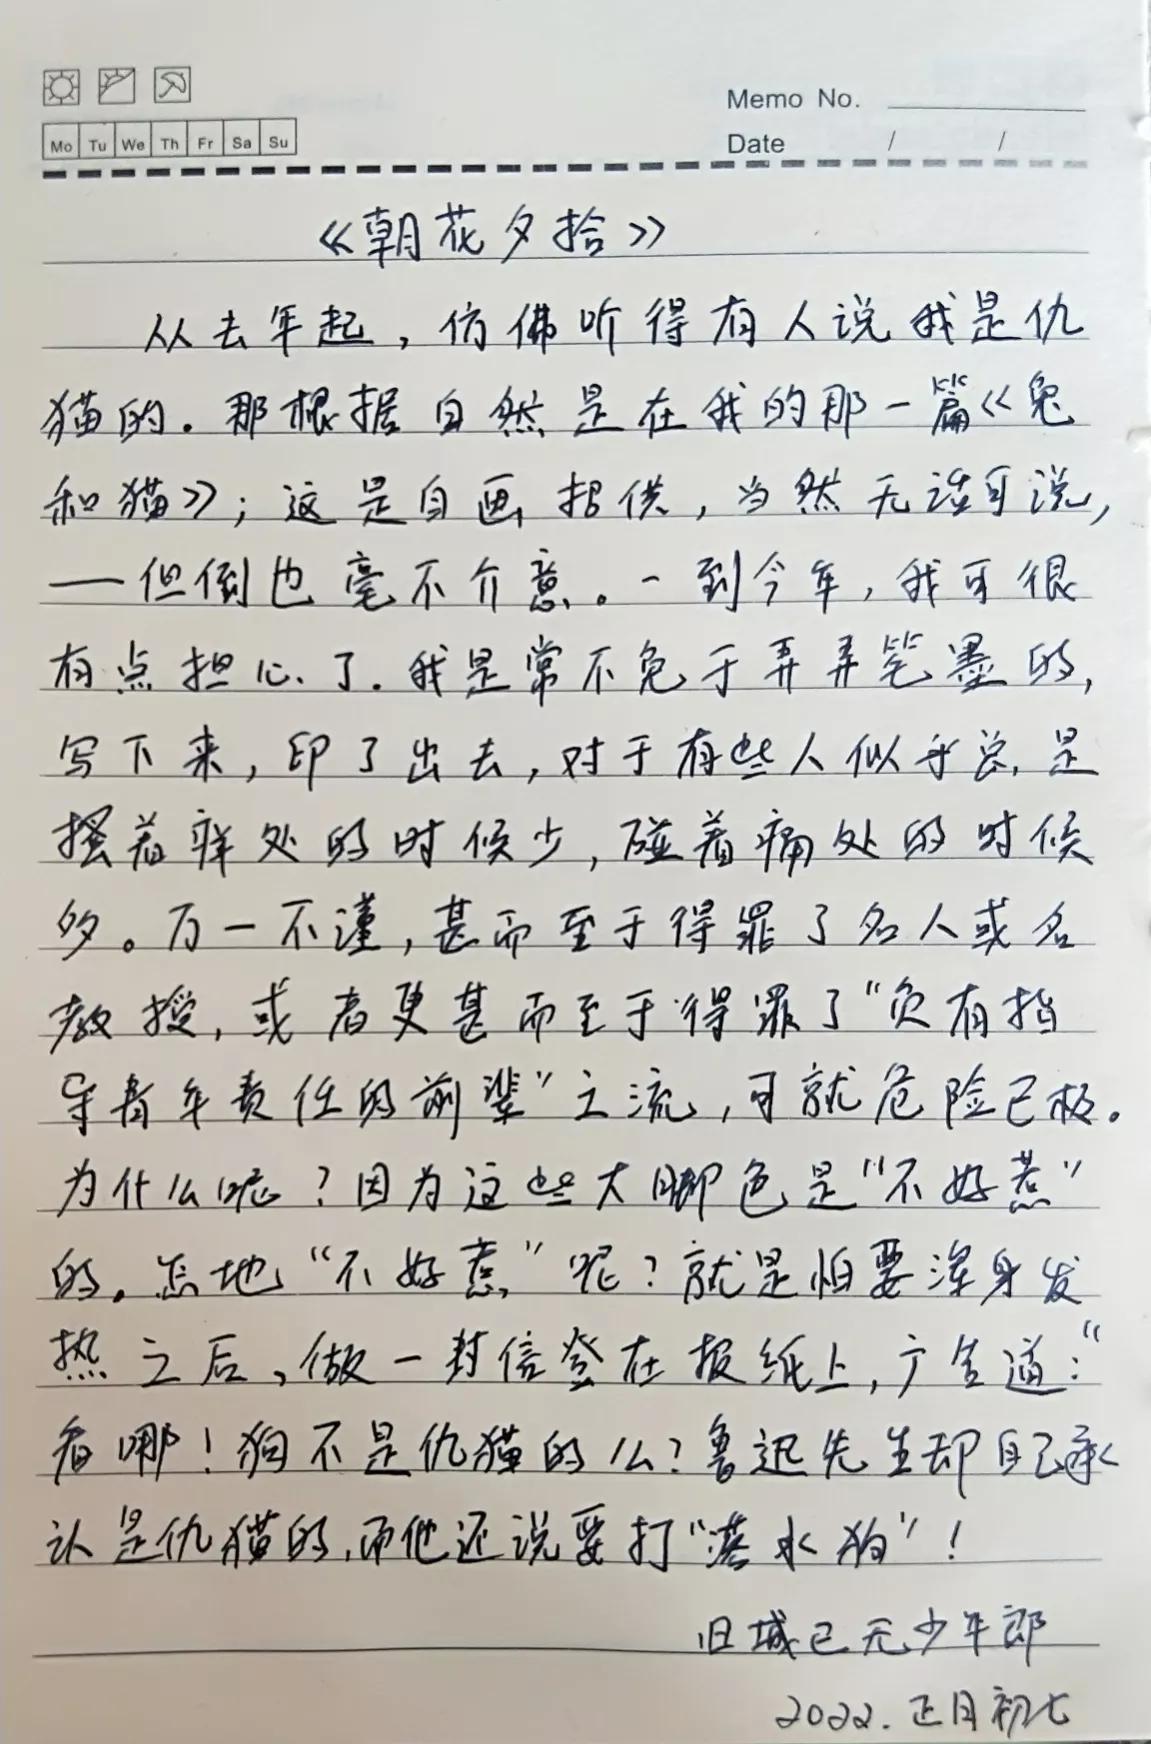 Memo No.
Mo Tu We Th Fr Sa Su
Date / /
《朝花夕拾》
从去年起，仿佛听得有人说我是仇
猫的。那根据自然是在我的那一篇《兔
和猫》；这是自画招供，当然无话可说，
——但倒也毫不介意。一到今年，我可很
有点担心了.我是常不免于弄弄笔墨的，
写下来，印了出去，对于有些人似乎总是
搔着痒处的时候少，碰着痛处的时候
多。万一不谨，甚而至于得罪了名人或名
教授，或者更甚而至于得罪了“负有指
导青年责任的前辈”之流，可就危险已极。
为什么呢？因为这些大脚色是“不好惹”
的。怎地“不好惹”呢？就是怕要浑身发
热之后，做一封信登在报纸上，广告道：“
看哪！狗不是仇猫的么？鲁迅先生却自己承
认是仇猫的，而他还说要打“落水狗”！
旧城已无少年郎
2022.正月初七